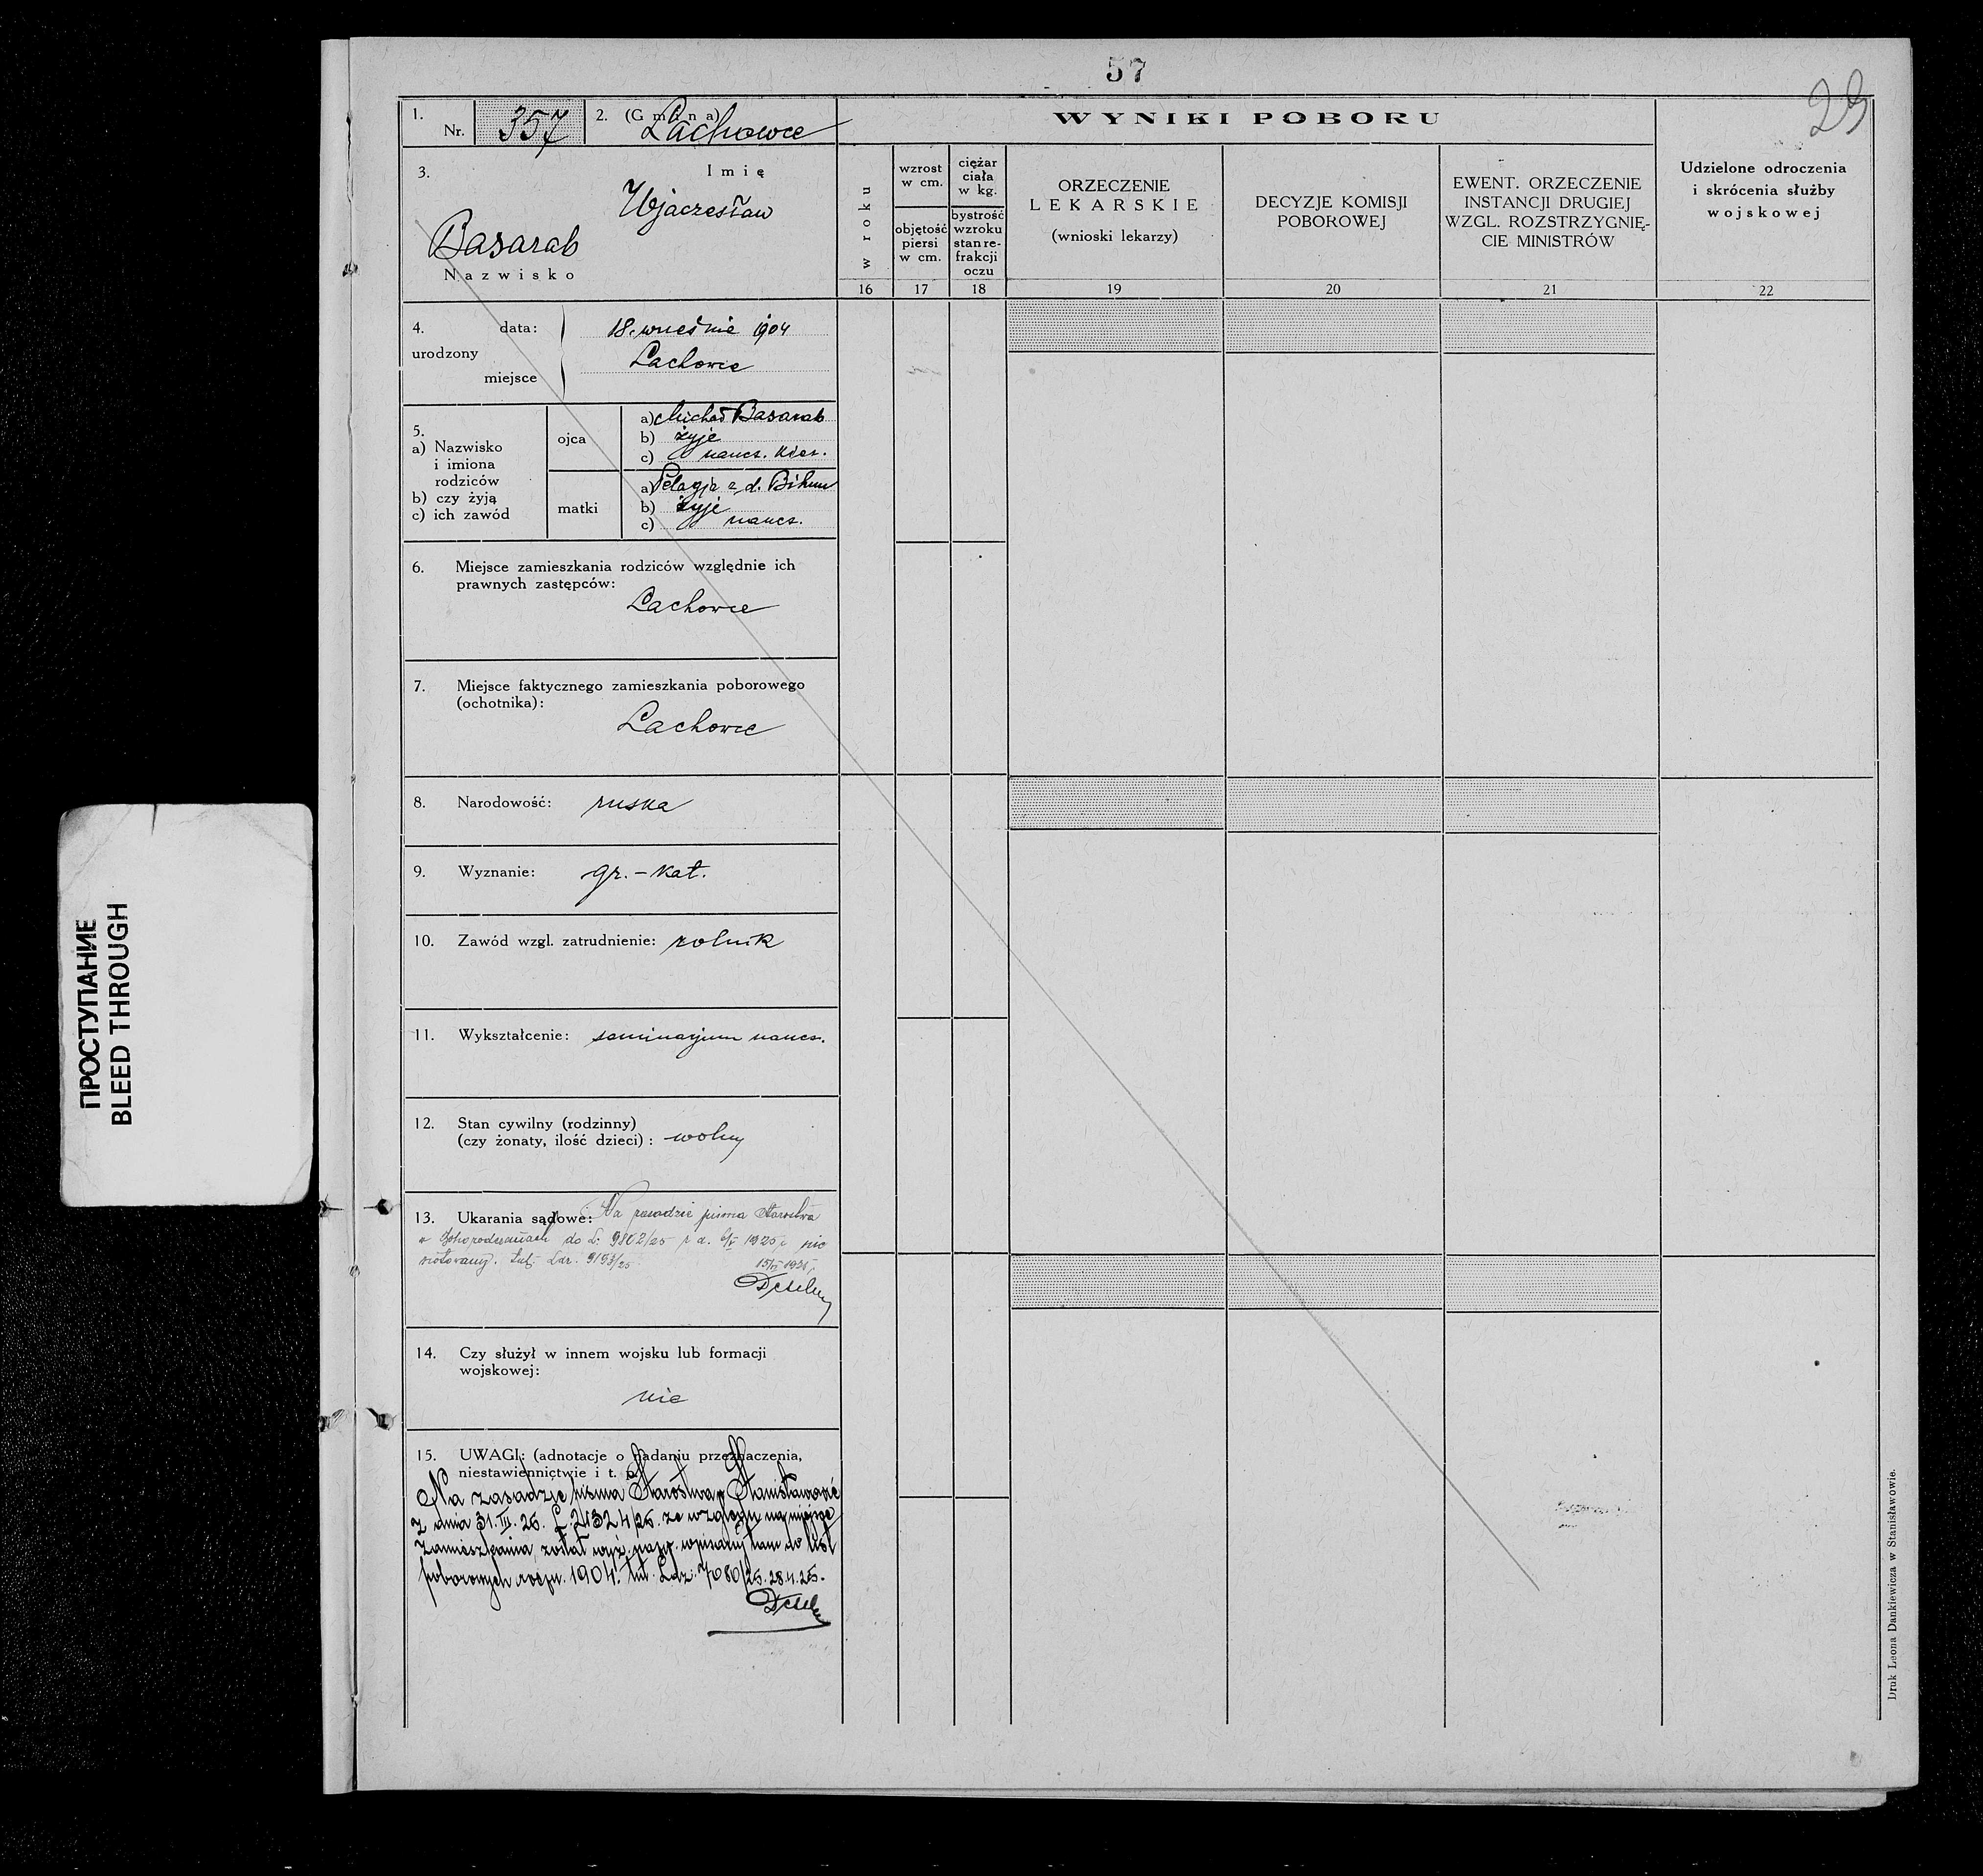 57
29
1. Nr. 357 2. (Gmina) Lachowce
WYNIKI POBORU
3. Imię
Wjaczesław
Basarab
Nazwisko
w roku
wzrost w cm.
objętość piersi w cm.
ciężar ciała w kg.
bystrość wzroku stan re-frakcji oczu
ORZECZENIE
LEKARSKIE
(wnioski lekarzy)
DECYZJE KOMISJI
POBOROWEJ
EWENT. ORZECZENIE
INSTANCJI DRUGIEJ
WZGL. ROZSTRZYGNIĘ-
CIE MINISTRÓW
Udzielone odroczenia
i skrócenia służby
wojskowej
16 17 18 19 20 21 22
4. data: 18. wrześnie 1904
urodzony
miejsce Lachowce
5.
a) Nazwisko
i imiona
rodziców
b) czy żyją
c) ich zawód
ojca
a) Michał Basarab
b) żyje
c) naucz. kier.
matki
a) Pelagja z d. Bihun
b) żyje
c) naucz.
6. Miejsce zamieszkania rodziców względnie ich
prawnych zastępców:
Lachowce
7. Miejsce faktycznego zamieszkania poborowego
(ochotnika):
Lachowce
8. Narodowość: ruska
9. Wyznanie: gr.-kat.
10. Zawód wzgl. zatrudnienie: rolnik
11. Wykształcenie: seminarjum naucz.
12. Stan cywilny (rodzinny)
(czy żonaty, ilość dzieci): wolny
13. Ukarania sądowe: Na zasadzie pisma Starostwa
w Bohorodczanach do L: 9802/25 z d. 1925 nie
notowany. tut. Ldz. 9193/25
14. Czy służył w innem wojsku lub formacji
wojskowej:
nie
15. UWAGI: (adnotacje o nadaniu przeznaczenia,
niestawiennictwie i t. p.
Na zasadzie pisma Starostwa w Stanisławowie
z dnia 31.III.25. L. 24324/25. ze względu na miejsce
zamieszkania, został wyż. nazw. wpisany tam do list
poborowych roczn. 1904. tut. Ldz. 7080/25. 28.4.25.
Druk Leona Dankiewicza w Stanisławowie.
ПРОСТУПАНИЕ
BLEED THROUGH